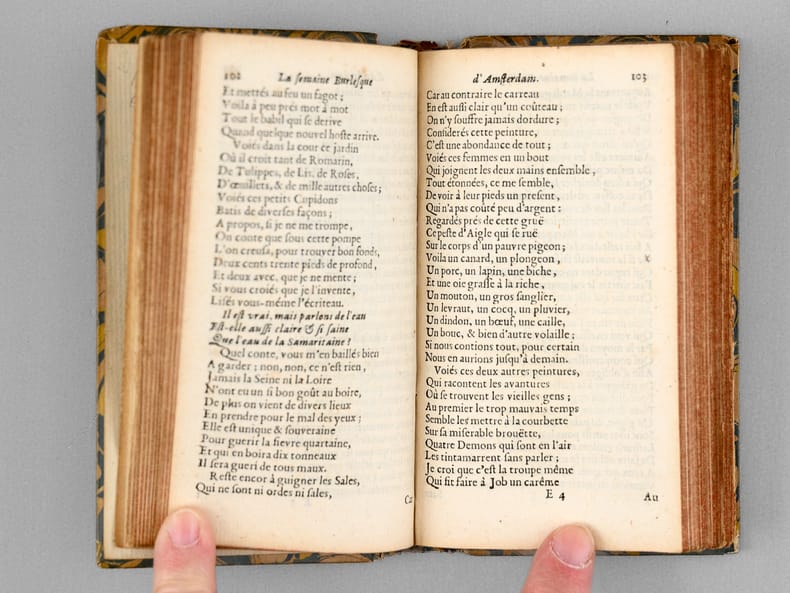 102 La ſemaine Burleſque
Et mettés au feu un fagot;
Voila à peu prés mot à mot
Tout le babil qui ſe derive
Quand quelque nouvel hoſte arrive.
Voiés dans la cour ce jardin
Où il croit tant de Romarin,
De Tulippes, de Lis, de Roſes,
D'œuillets, & de mille autres choſes;
Voiés ces petits Cupidons
Batis de diverſes façons;
A propos, ſi je ne me trompe,
On conte que ſous cette pompe
L'on creuſa, pour trouver bon fonds,
Deux cents trente pieds de profond,
Et deux avec, que je ne mente;
Si vous croiés que je l'invente,
Liſés vous-même l'écriteau.
Il eſt vrai, mais parlons de l'eau
Eſt-elle auſſi claire & ſi ſaine
Que l'eau de la Samaritaine?
Quel conte, vous m'en baillés bien
A garder; non, non, ce n'eſt rien,
Jamais la Seine ni la Loire
N'ont eu un ſi bon goût au boire,
De plus on vient de divers lieux
En prendre pour le mal des yeux;
Elle eſt unique & ſouveraine
Pour guerir la fievre quartaine,
Et qui en boira dix tonneaux
Il ſera gueri de tous maux.
Reſte encor à guigner les Sales,
Qui ne ſont ni ordes ni ſales,
Ca
d'Amſterdam. 103
Car au contraire le carreau
En eſt auſſi clair qu'un coûteau;
On n'y ſouffre jamais dordure;
Conſiderés cette peinture,
C'eſt une abondance de tout;
Voiés ces femmes en un bout
Qui joignent les deux mains enſemble,
Tout étonnées, ce me ſemble,
De voir à leur pieds un preſent,
Qui n'a pas coûté peu d'argent:
Regardés prés de cette gruë
Ce peſte d'Aigle qui ſe ruë
Sur le corps d'un pauvre pigeon;
Voila un canard, un plongeon,
Un porc, un lapin, une biche,
Et une oie graſſe à la riche,
Un mouton, un gros ſanglier,
Un levraut, un cocq, un pluvier,
Un dindon, un bœuf, une caille,
Un bouc, & bien d'autre volaille;
Si nous contions tout, pour certain
Nous en aurions juſqu'à demain.
Voiés ces deux autres peintures,
Qui racontent les avantures
Où ſe trouvent les vieilles gens;
Au premier le trop mauvais temps
Semble les mettre à la courbette
Sur ſa miſerable brouëtte,
Quatre Demons qui ſont en l'air
Les tintamarrent ſans parler;
Je croi que c'eſt la troupe même
Qui fit faire à Job un carême
E 4 Au